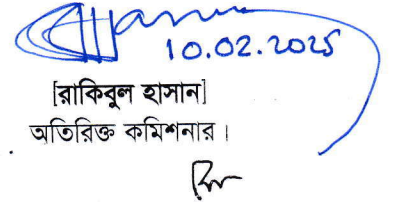 10.02.2025
[রাকিবুল হাসান]
অতিরিক্ত কমিশনার।